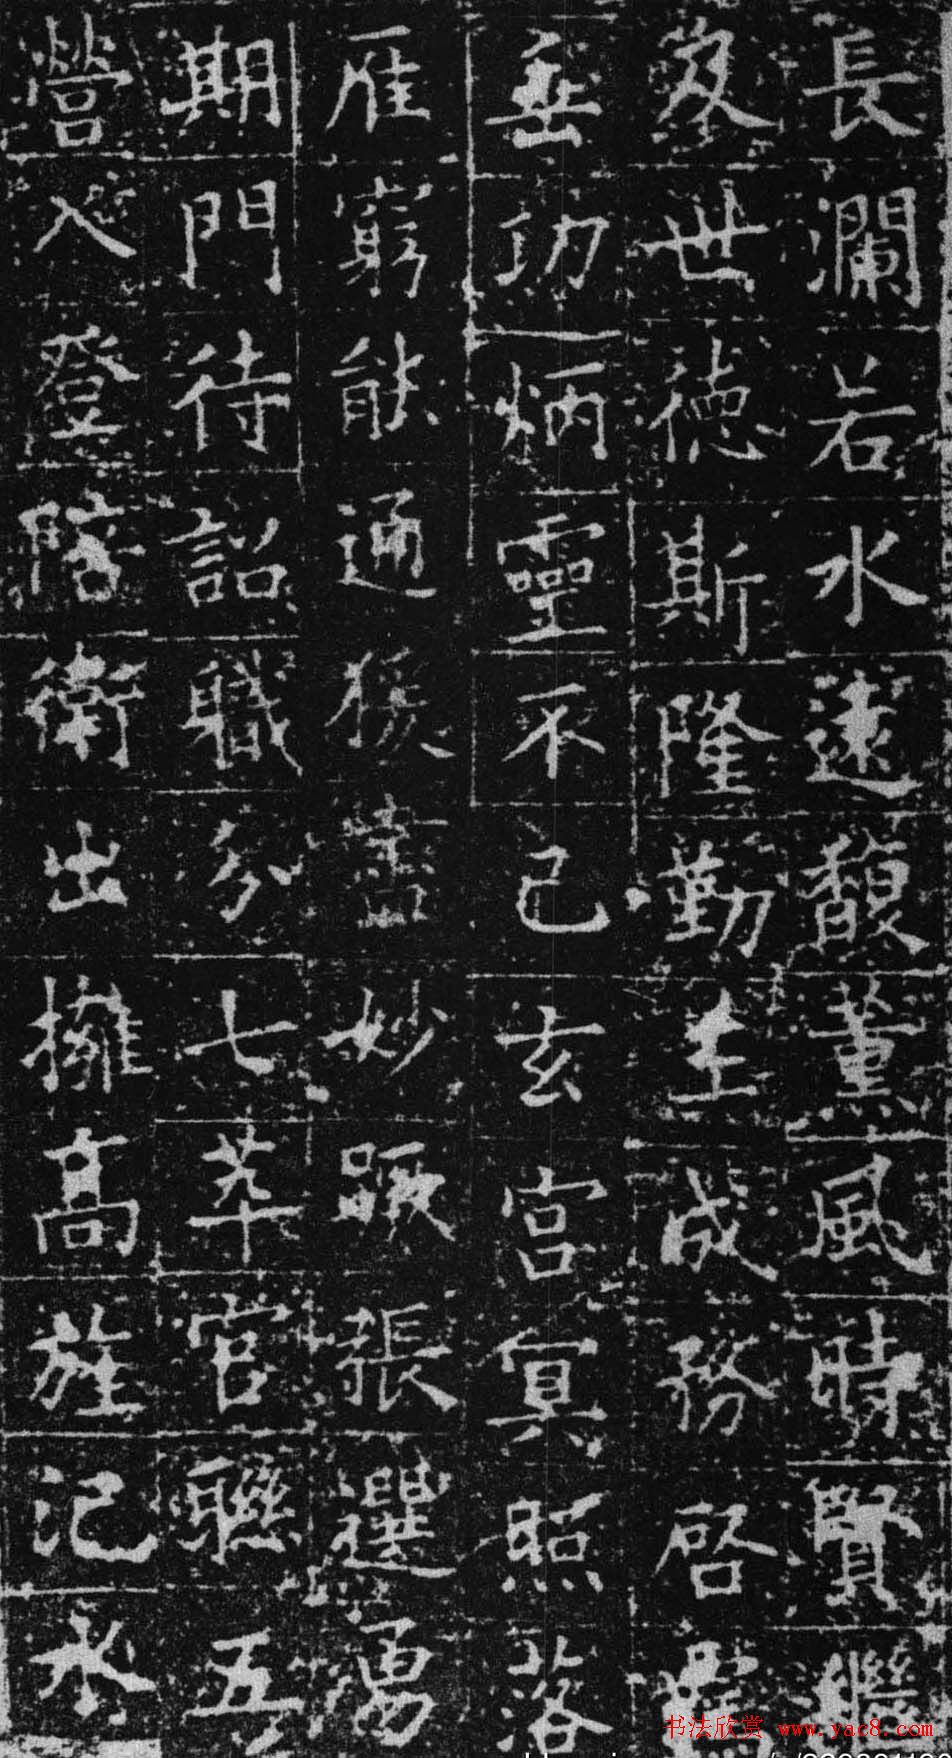 長瀾若水遠馥薰風時賢繼
世德斯隆勤王成務啓
垂功炳靈不已玄宮冥照落
雁窮能通猨書妙蹶張選勇
期門待詔職分七萃官聯五
營入登陪衛出擁高旌氾水
书法欣赏 www.yac8.com